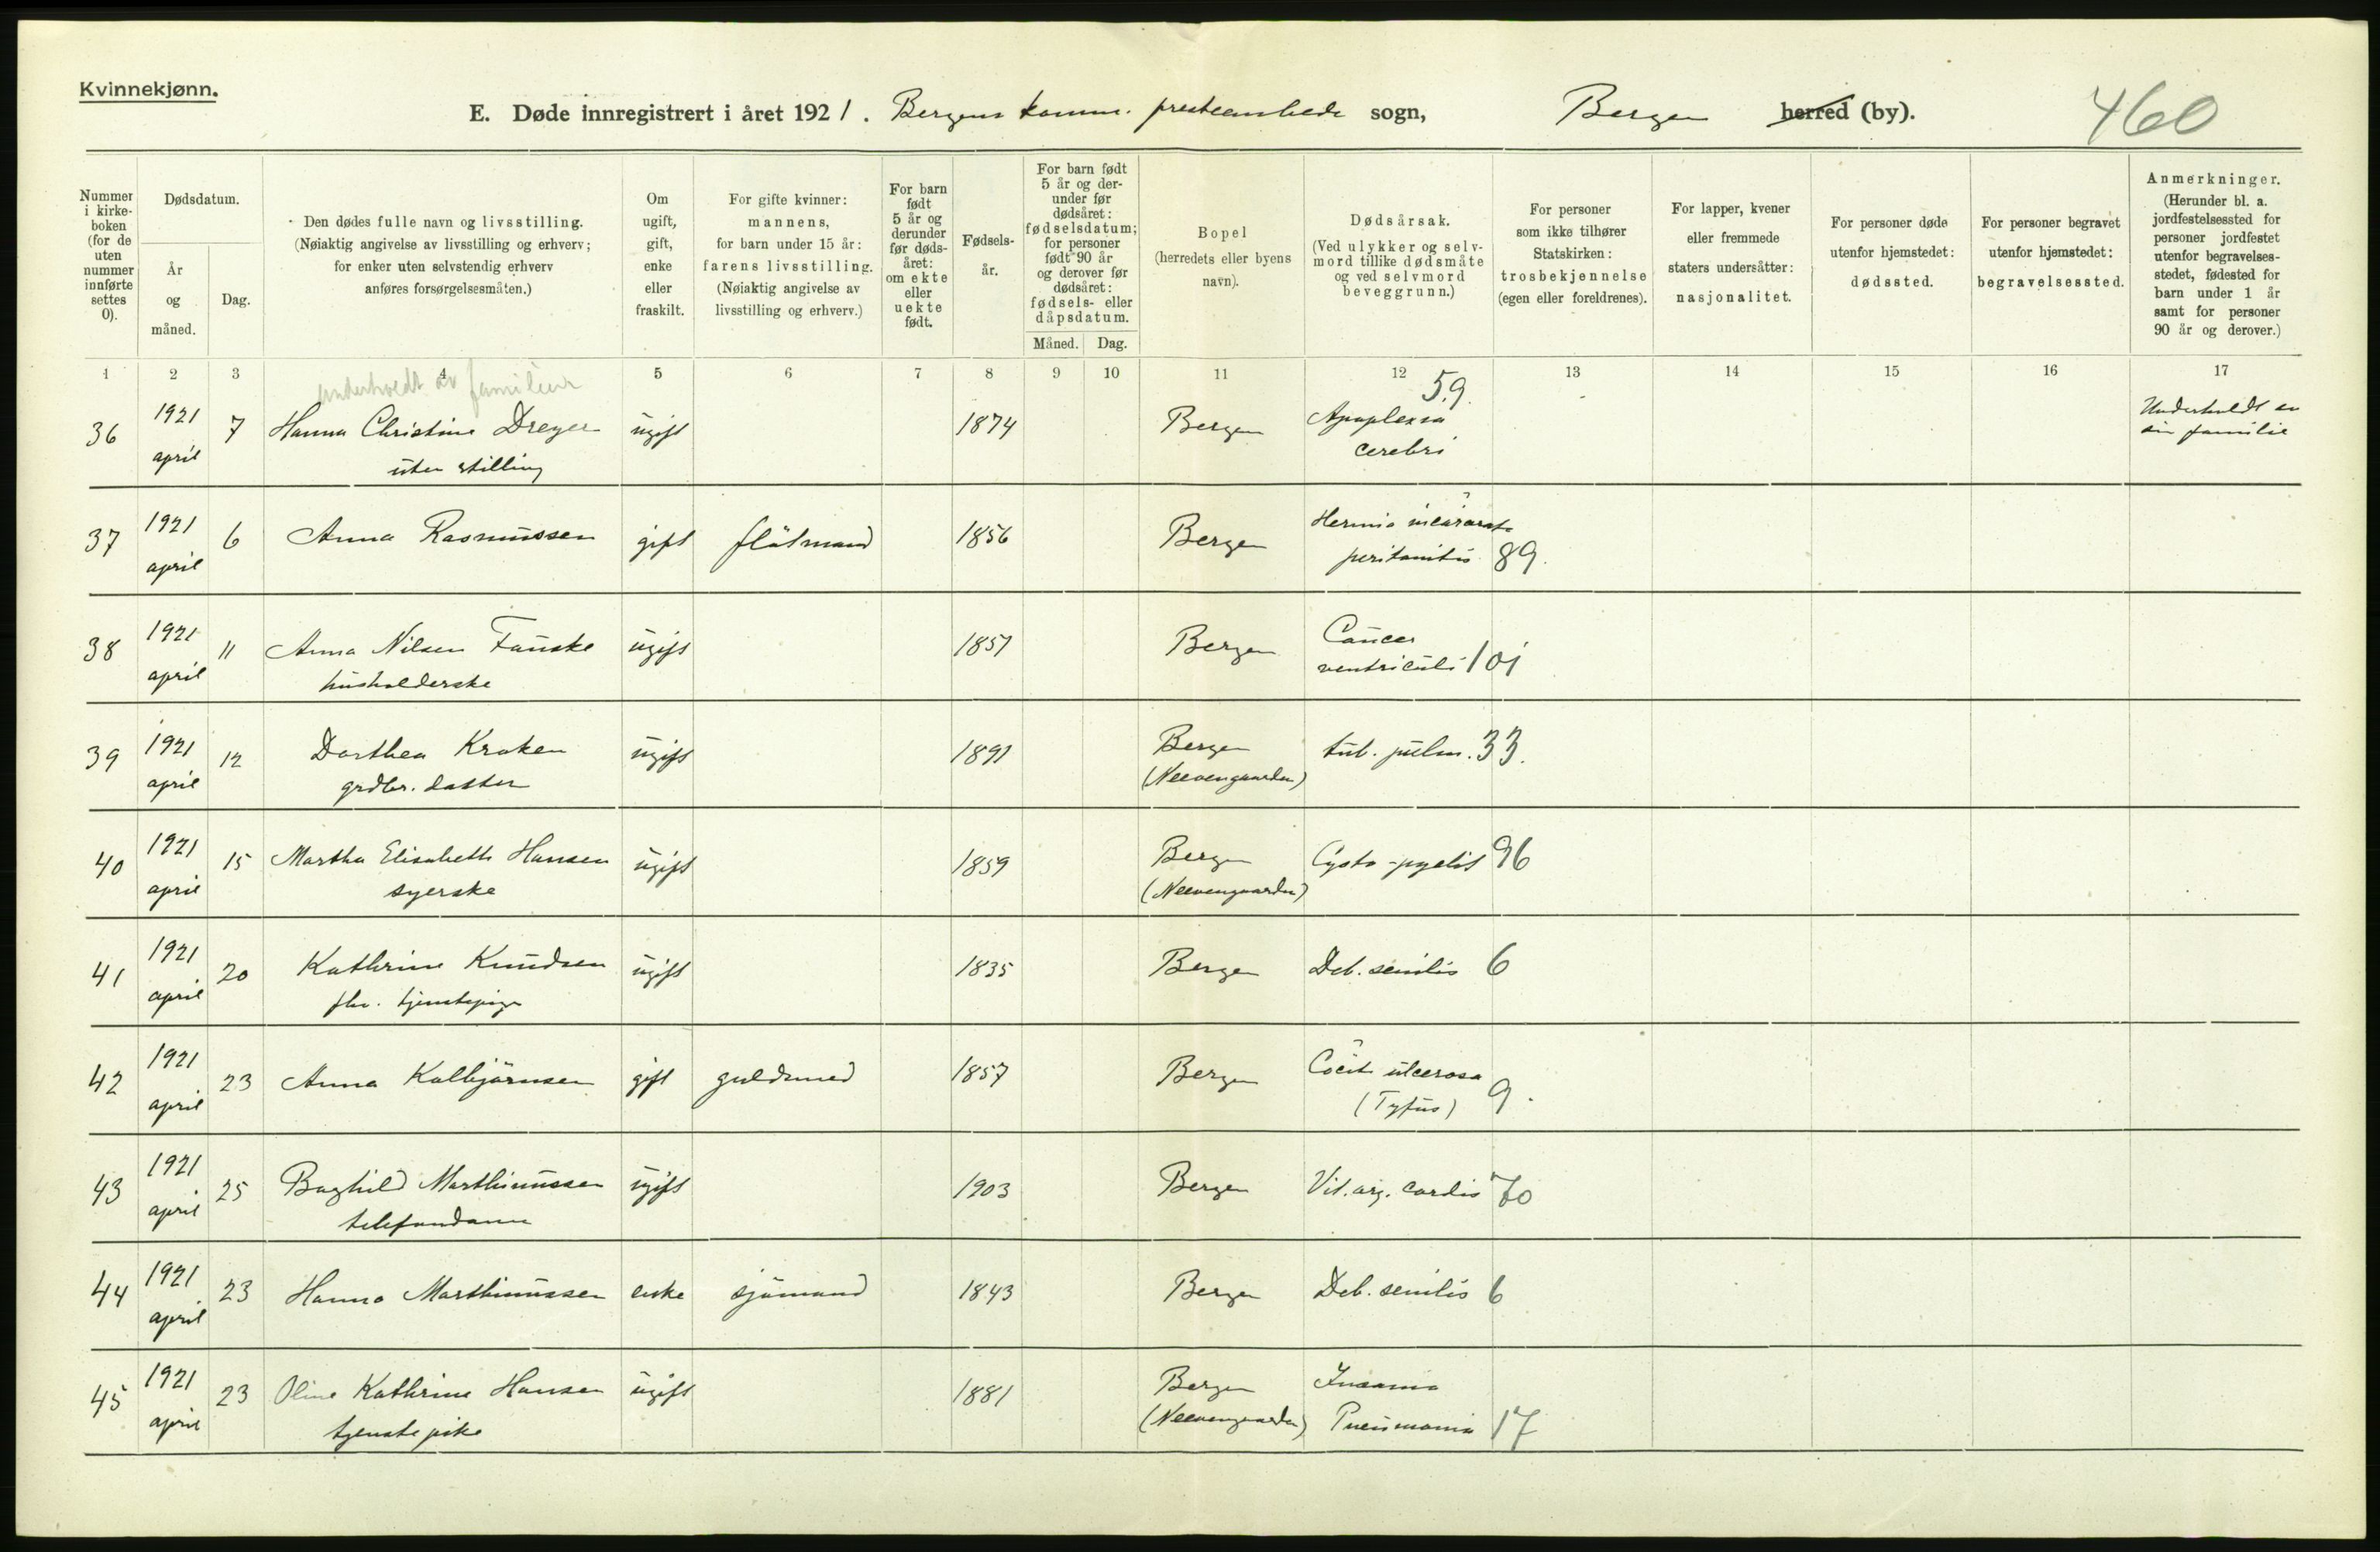 Kvinnekjønn.
E. Døde innregistrert i året 1921. Bergens komm. presteembede sogn, Bergen herred (by).
460
Nummer i kirke-boken (for de uten nummer innførte settes 0).
Dødsdatum.
År og måned.
Dag.
Den dødes fulle navn og livsstilling.
(Nøiaktig angivelse av livsstilling og erhverv;
for enker uten selvstendig erhverv
anføres forsørgelsesmåten.)
Om ugift, gift, enke eller fraskilt.
For gifte kvinner:
mannens,
for barn under 15 år:
farens livsstilling.
(Nøiaktig angivelse av
livsstilling og erhverv.)
For barn født 5 år og derunder før døds-året: om ekte eller uekte født.
Fødsels-år.
For barn født 5 år og der-under før dødsåret: fødselsdatum; for personer født 90 år og derover før dødsåret: fødsels- eller dåpsdatum.
Måned.
Dag.
Bopel
(herredets eller byens
navn).
Dødsårsak.
(Ved ulykker og selv-
mord tillike dødsmåte
og ved selvmord
beveggrunn.)
For personer
som ikke tilhører
Statskirken:
trosbekjennelse
(egen eller foreldrenes).
For lapper, kvener
eller fremmede
staters undersåtter:
nasjonalitet.
For personer døde
utenfor hjemstedet:
dødssted.
For personer begravet
utenfor hjemstedet:
begravelsessted.
Anmerkninger.
(Herunder bl. a.
jordfestelsessted for
personer jordfestet
utenfor begravelses-
stedet, fødested for
barn under 1 år
samt for personer
90 år og derover.)
1 2 3 4 5 6 7 8 9 10 11 12 13 14 15 16 17
underholdt av familien
59.
36 1921 april 7 Hanna Christine Dreyer ugift 1874 Bergen Apoplexia cerebri Underholdt av sin familie
uten stilling
37 1921 april 6 Anna Rasmussen gift flåtmand 1856 Bergen Hernia incarcerata peritonitis 89.
38 1921 april 11 Anna Nilsen Fauske ugift 1857 Bergen Cancer ventriculi 101
husholderske
39 1921 april 12 Dorthea Kraken ugift 1891 Bergen (Neevengaarden) tub. pulm. 33.
grdbr. datter
40 1921 april 15 Martha Elisabeth Hansen ugift 1859 Bergen (Neevengaarden) Cysto-pyelit 96
syerske
41 1921 april 20 Kathrine Knudsen ugift 1835 Bergen Deb. senilis 6
fhv. tjenestepige
42 1921 april 23 Anna Kolbjørnsen gift guldsmed 1857 Bergen ulcerosa (Tyfus) 9.
43 1921 april 25 Baghild Marthinussen ugift 1903 Bergen Vit. org. cordis 70
telefondame
44 1921 april 23 Hanna Marthinussen enke sjømand 1843 Bergen Deb. senilis 6
45 1921 april 23 Oline Kathrine Hansen ugift 1881 Bergen (Neevengaarden) Insania Pneumonia 17
tjenestepike